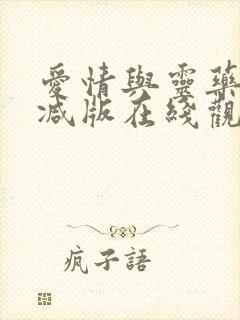 愛情與靈藥
减版在綫觀
疯子語